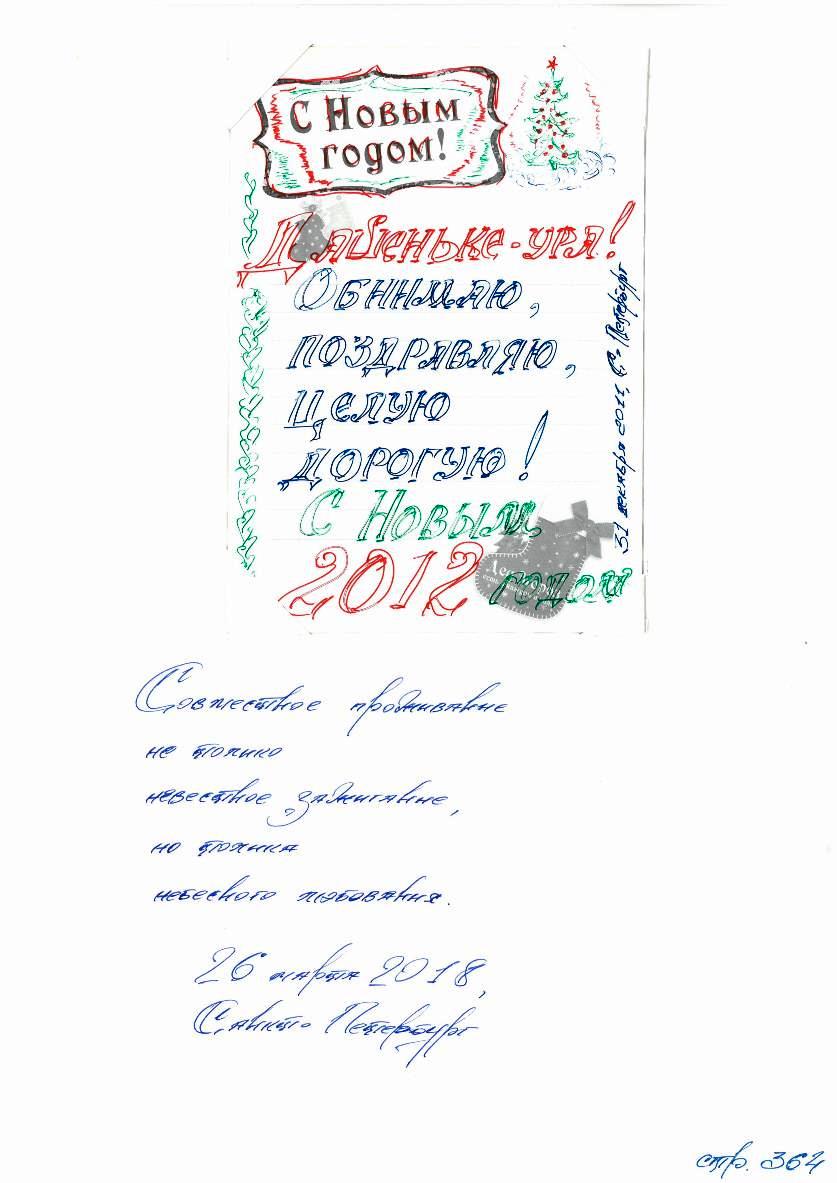 С Новым
годом!
Дашеньке - ура!
Обнимаю,
поздравляю,
целую
дорогую!
С Новым
2012 годом
31 декабря 2011, С-Петербург
Совместное проживание
не только
невестное зажигание,
но толика
небесного любования.
26 марта 2018,
Санкт-Петербург
стр. 364